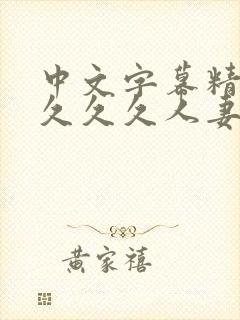 中文字幕精
久久久人妻
黄家禧